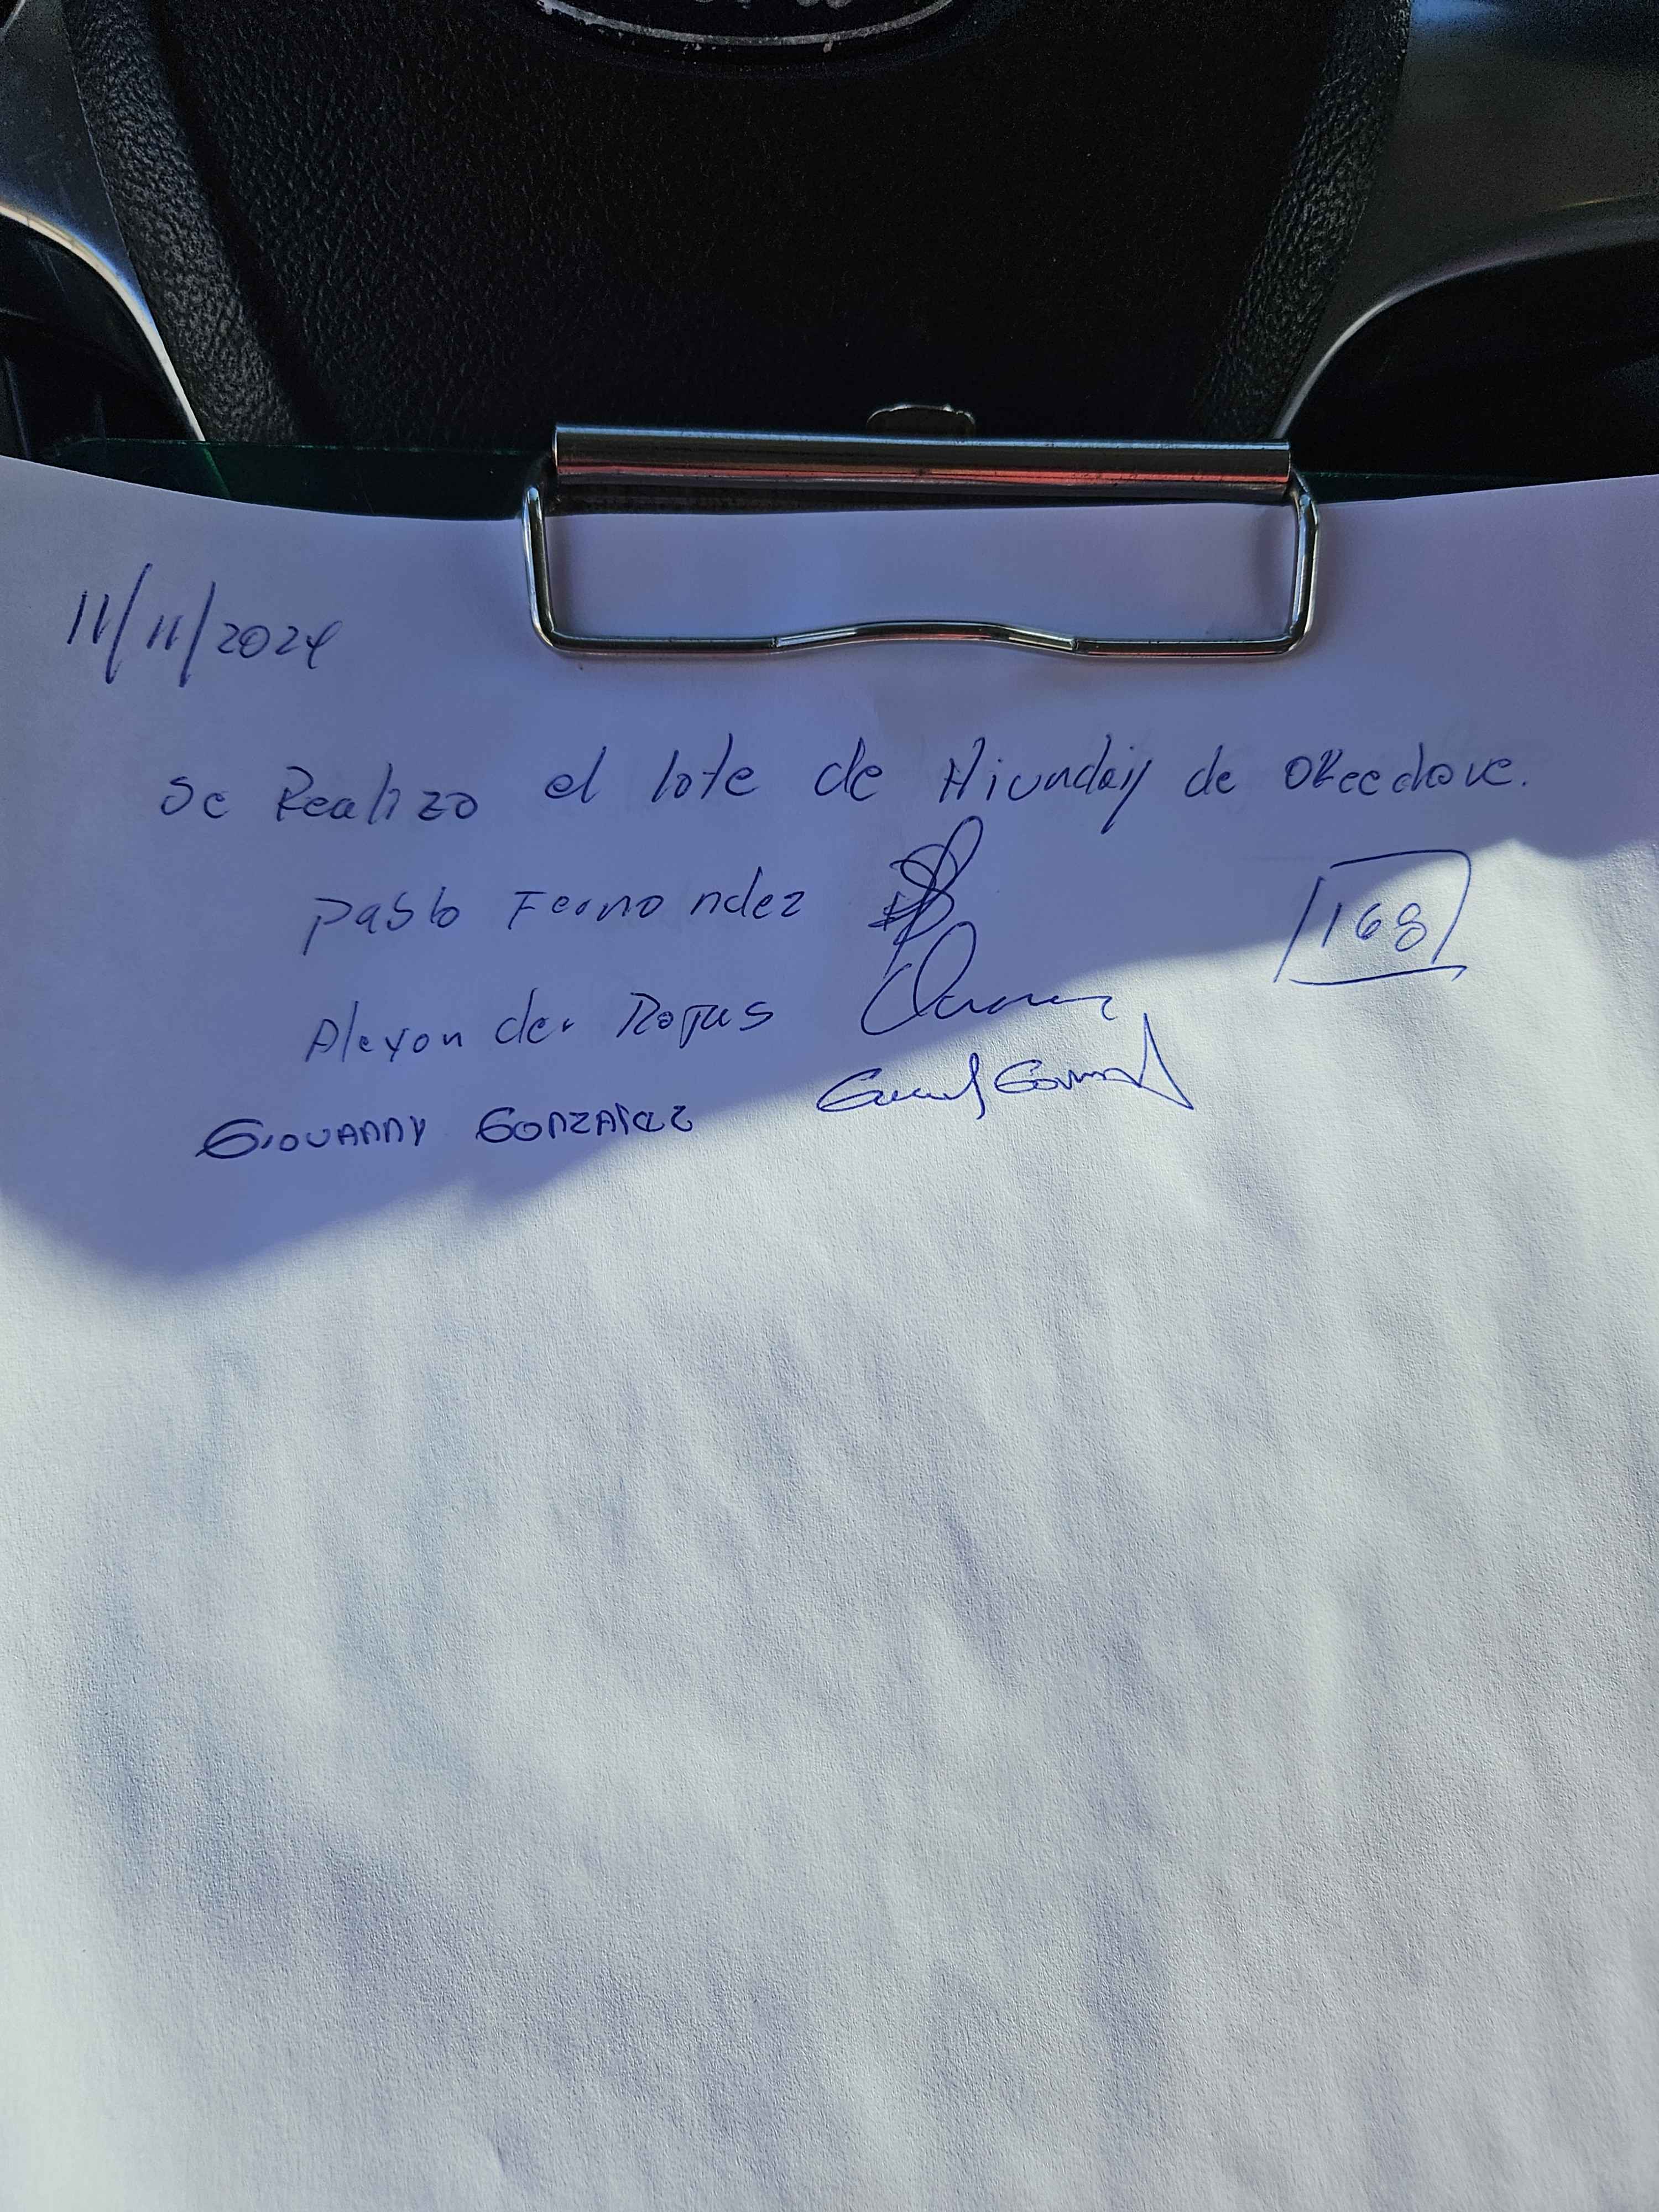 11/11/2024
Se Realizo el lote de Hiunday de Okeechove.
Pablo Fernandez
168
Alexander Rojas
Giovanny Gonzalez